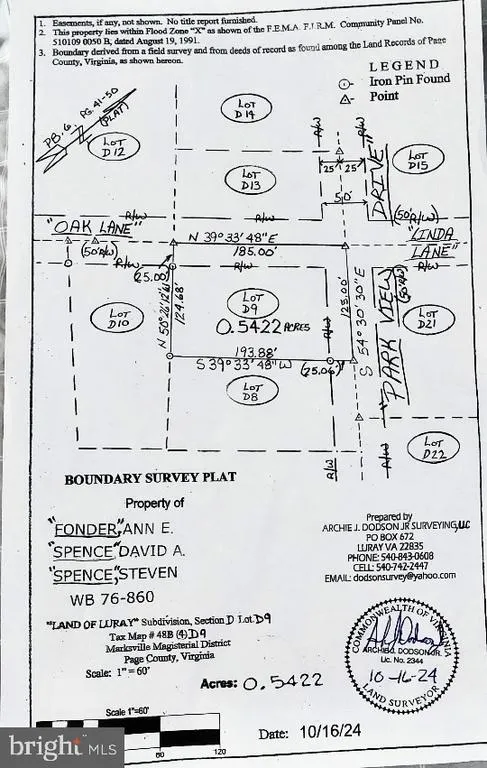 1. Easements, if any, not shown. No title report furnished.
2. This property lies within Flood Zone "X" as shown of the F.E.M.A. F.I.R.M. Community Panel No.
510109 0050 B, dated August 19, 1991.
3. Boundary derived from a field survey and from deeds of record as found among the Land Records of Page
County, Virginia, as shown hereon.
LEGEND
Iron Pin Found
Point
PB. 6 PG. 41-50
(PLAT)
LOT
D12
LOT
D14
LOT
D13
LOT
D15
R/W
R/W
25' 25'
50'
DRIVE"
(50' R/W)
"LINDA
LANE"
"OAK LANE"
R/W
R/W
(50' R/W)
R/W
(25.00')
N 39° 33' 48" E
185.00'
R/W
R/W
LOT
D10
124.68'
LOT
D9
0.5422 ACRES
R/W
125.00'
S 54° 30' 30" E
"PARK VIEW
(50' R/W)
LOT
D21
193.88'
S 39° 33' 48" W
(25.06')
LOT
D8
LOT
D22
R/W
R/W
BOUNDARY SURVEY PLAT
Property of
"FONDER", ANN E.
"SPENCE", DAVID A.
"SPENCE", STEVEN
WB 76-860
"LAND OF LURAY" Subdivision, Section D Lot D9
Tax Map # 48B (4) D9
Marksville Magisterial District
Page County, Virginia
Scale: 1" = 60'
Acres: 0.5422
Prepared by
ARCHIE J. DODSON JR SURVEYING, LLC
PO BOX 672
LURAY VA 22835
PHONE: 540-843-0608
CELL: 540-742-2447
EMAIL: dodsonsurvey@yahoo.com
COMMONWEALTH OF VIRGINIA
ARCHIE J. DODSON JR.
Lic. No. 2344
10-16-24
LAND SURVEYOR
Scale 1"=60'
60
120
Date: 10/16/24
bright MLS